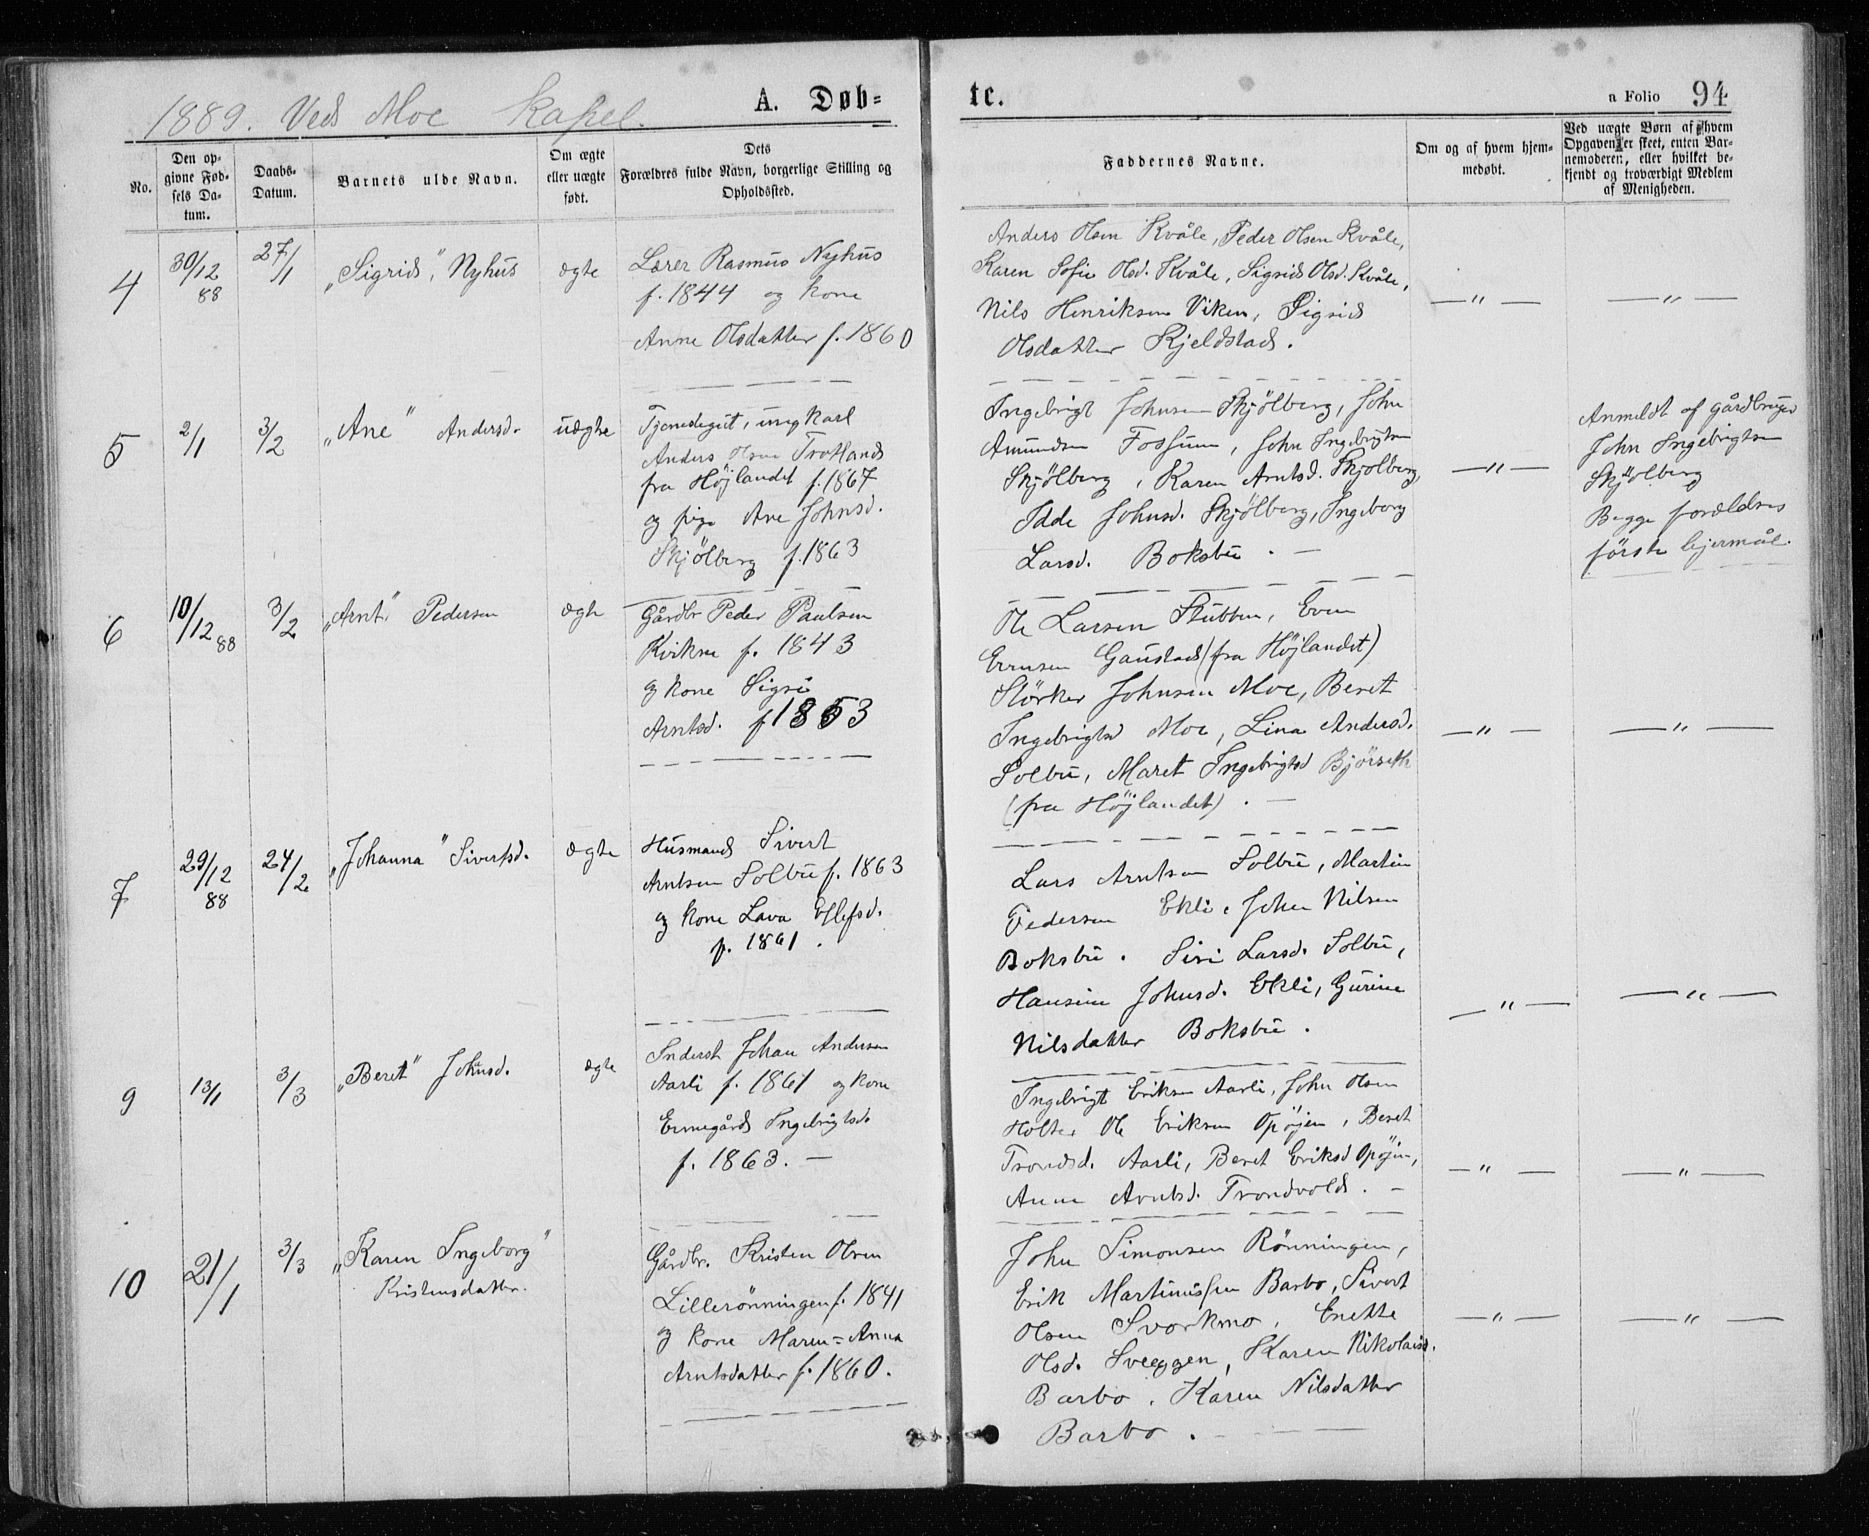 1889. Ved Moe Kapel.
A. Døb=
te.
a Folio 94
No.
Den op-
givne Fød-
sels Da-
tum.
Daabs-
Datum.
Barnets fulde Navn.
Om ægte
eller uægte
født.
Dets
Forældres fulde Navn, borgerlige Stilling og
Opholdssted.
Faddernes Navne.
Om og af hvem hjem-
medøbt.
Ved uægte Børn af hvem
Opgaven er skeet, enten Bar-
nemoderen, eller hvilket be-
kjendt og troværdigt Medlem
af Menigheden.
4
30/12
88
27/1
„Sigrid", Nyhus
ægte
Lærer Rasmus Nyhus
f. 1844 og kone
Anne Olsdatter f. 1860
Anders Olsen Kvåle, Peder Olsen Kvåle,
Karen Sofie Olsd. Kvåle, Sigrid Olsd. Kvåle,
Nils Henriksen Viken, Sigrid
Olsdatter Kjeldstad.
— " —
— " —
5
2/1
3/2
„Ane" Andersd.
uægte
Tjenestegut, ungkarl
Anders Olsen Trotland
fra Höjlandet f. 1867
og pige Ane Johnsd.
Skjölberg f. 1863
Ingebrigt Johnsen Skjölberg, John
Amundsen Fossum, John Ingebrigtsen
Skjölberg, Karen Arntsd. Skjölberg,
Idde Johnsd. Skjölberg, Ingeborg
Larsd. Boksbu. —
— " —
Anmeldt af gårdbruger
John Ingebrigtsen
Skjölberg
Begge forældres
förste lejermål.
6
10/12 88
3/2
„Arnt" Pedersen
ægte
Gårdbr. Peder Paulsen
Kvikne f. 1843
og kone Sigri
Arntsd. f 1853
Ole Larsen Stubben, Even
Evensen Gaustad (fra Höjlandet)
Störker Johnsen Moe, Beret
Ingebrigtsd Moe, Lina Andersd.
Solbu, Maret Ingebrigtsd Björseth
(fra Höjlandet). —
— " —
— " —
7
29/12
88
24/2
„Johanna" Sivertsd.
ægte
Husmand Sivert
Arntsen Solbu f. 1863
og kone Lava Ellefsd.
f. 1861.
Lars Arntsen Solbu, Martin
Pedersen Ekli, John Nilsen
Boksbu. Siri Larsd. Solbu,
Hansine Johnsd. Ekli, Gurine
Nilsdatter Boksbu.
— " —
— " —
9
13/1
3/3
„Beret" Johnsd.
ægte
Inderst Johan Andersen
Aarli f. 1861 og kone
Ermegård Ingebrigtsd.
f. 1863. —
Ingebrigt Eriksen Aarli, John Olsen
Holter Ole Eriksen Opöjen, Beret
Trondsd. Aarli, Beret Eriksd Opöjen,
Anne Arntsd. Trondvold. —
— " —
— " —
10
21/1
3/3
„Karen Ingeborg"
Kristensdatter.
Gårdbr. Kristen Olsen
Lillerönningen f. 1841
og kone Maren=Anna
Arntsdatter f. 1860.
John Simonsen Rönningen,
Erik Martinussen Barbo, Sivert
Olsen Svorkmo, Enette
Olsd. Sveggen, Karen Nikolaisd.
Barbo. Karen Nilsdatter
Barbo.
— " —
— " —